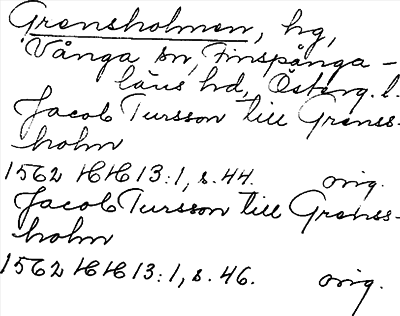 Grensholmen, hg,
Vånga sn, Finspånga-
läns hd, Österg. l.
Jacob Tursson till Grenss-
holm
1562 HH 13:1, s. 44. orig.
Jacob Tursson till Grenss-
holm
1562 HH 13:1, s. 46. orig.